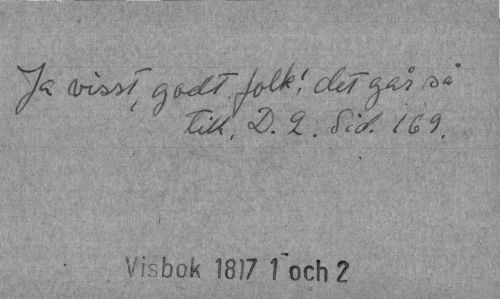 Ja visst, godt folk! det går så
till, D. 2. Sid. 169.
Visbok 1817 1 och 2